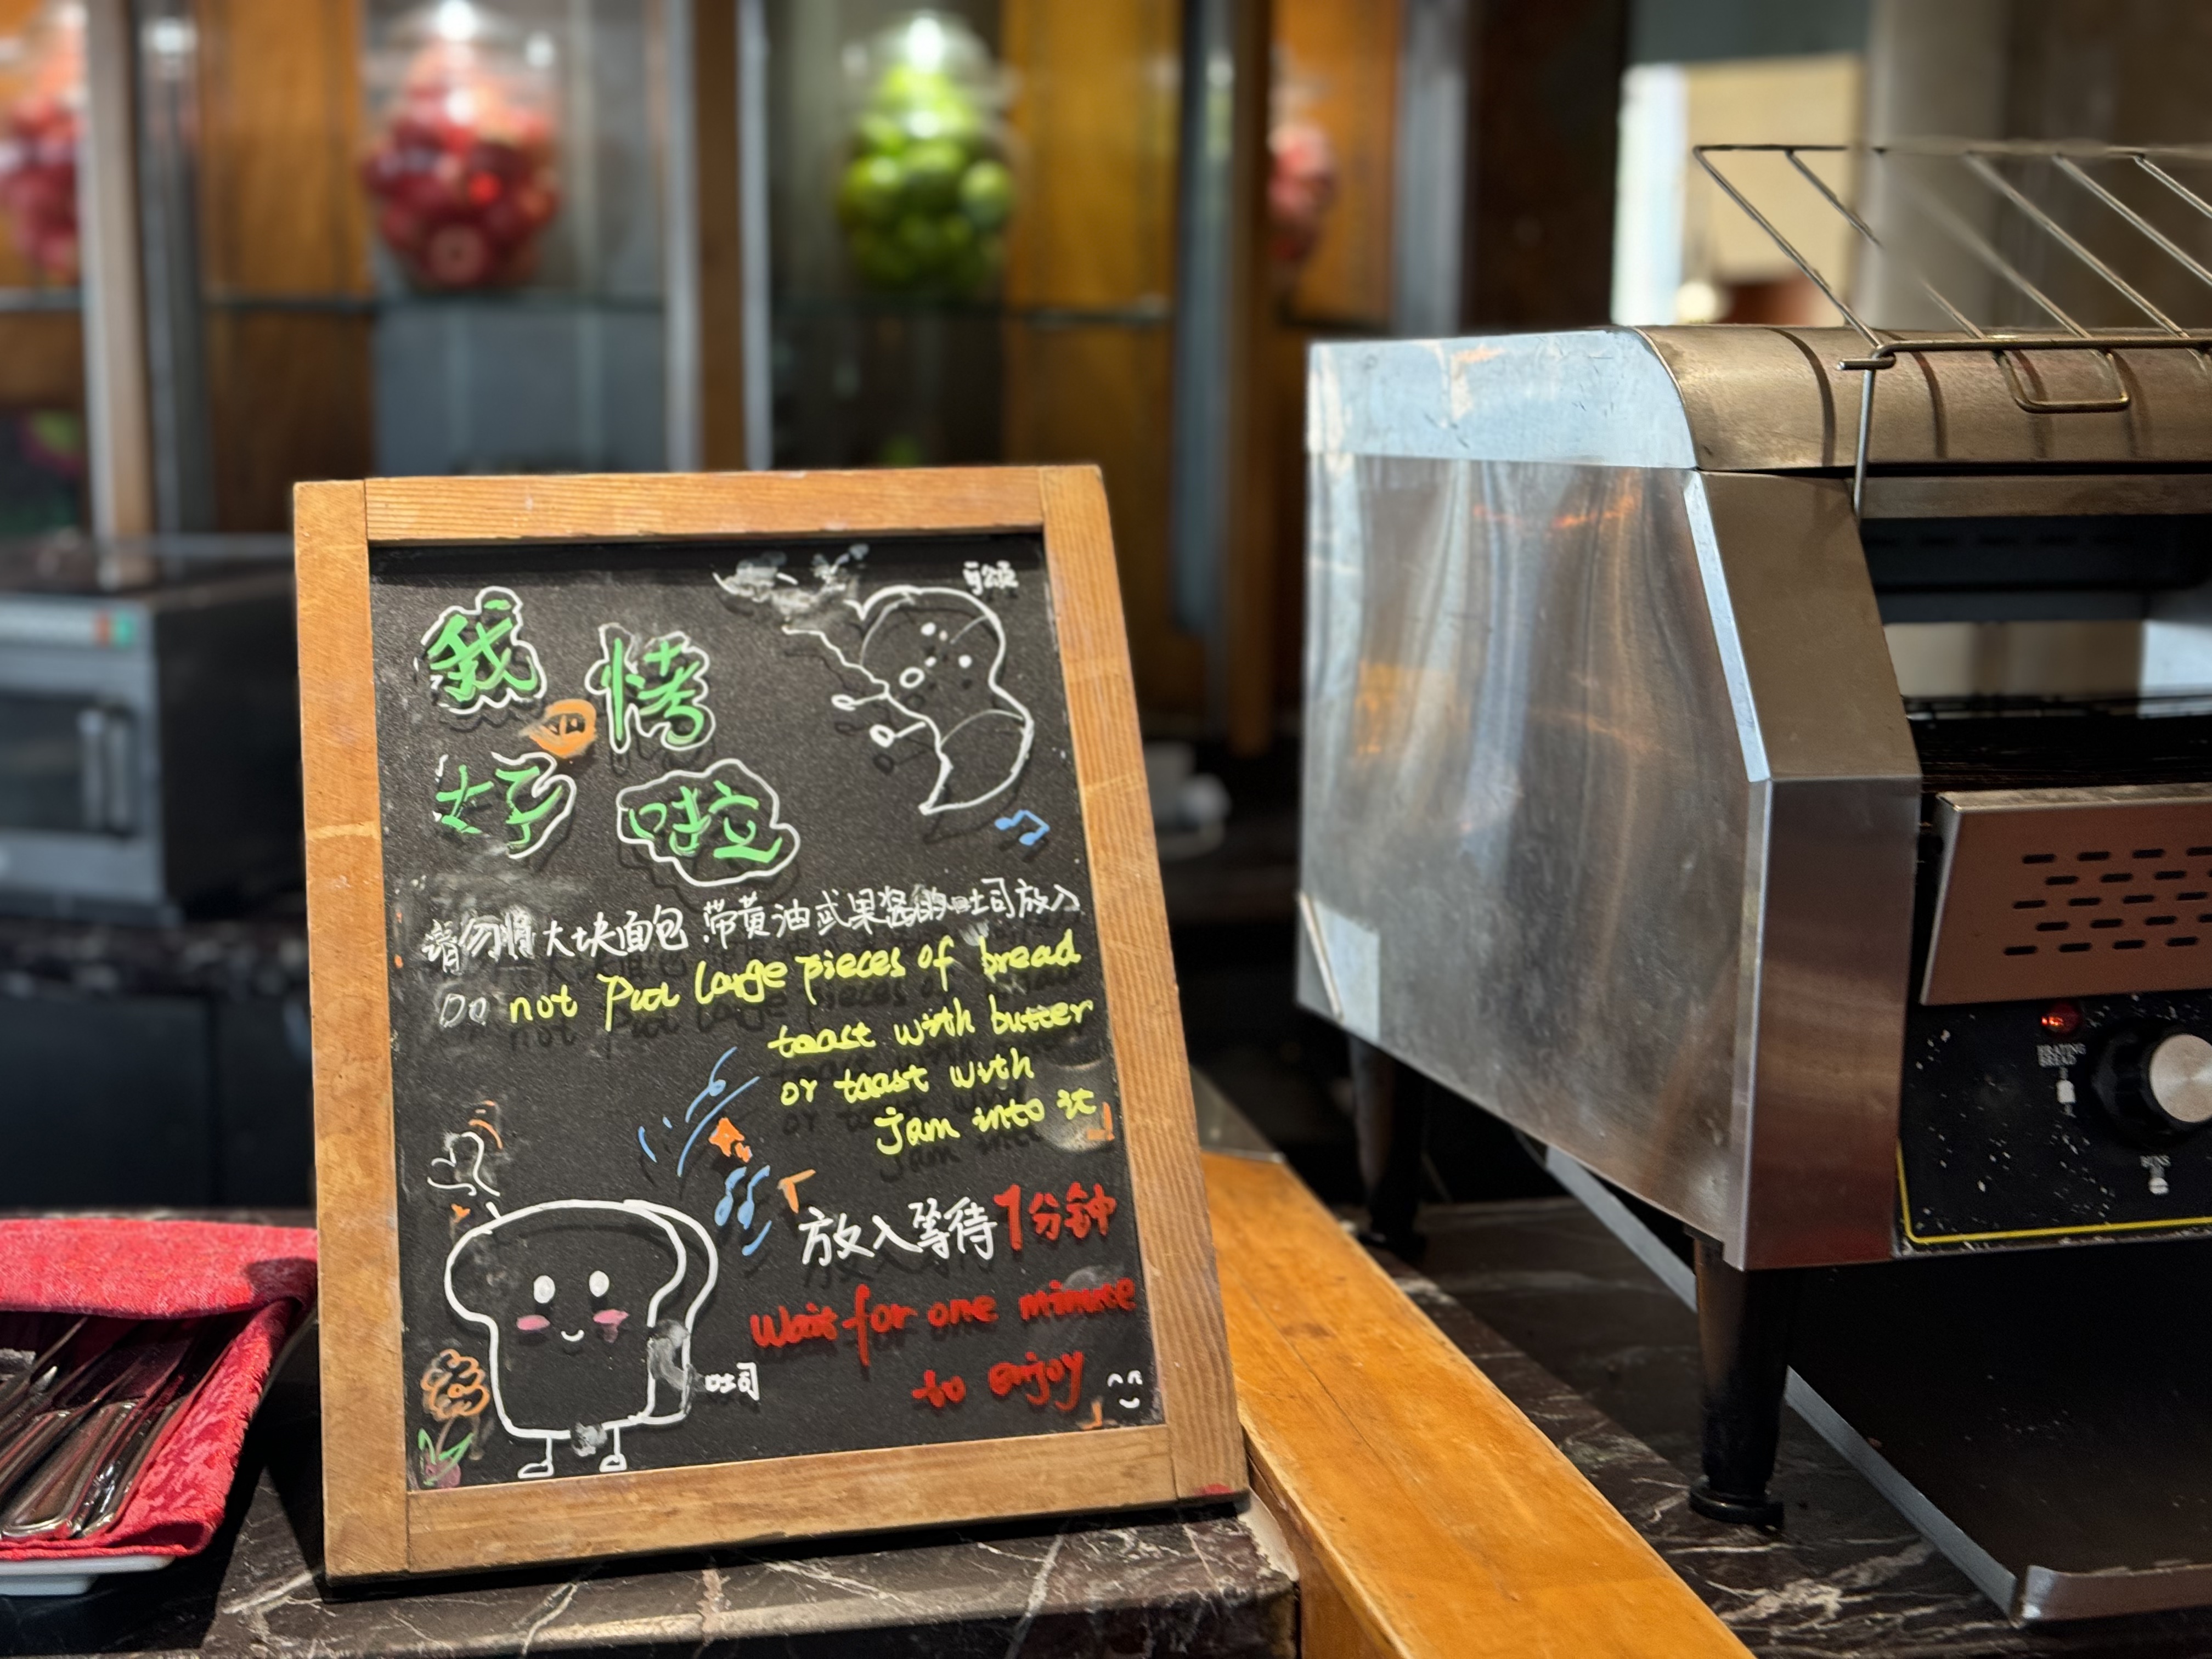 我烤
好啦
可颂
请勿将大块面包 带黄油或果酱的吐司放入
Do not Put large pieces of bread
toast with butter
or toast with
jam into it
放入等待1分钟
Wait for one minute
to enjoy
吐司
HEATING
BREAD
BUNS